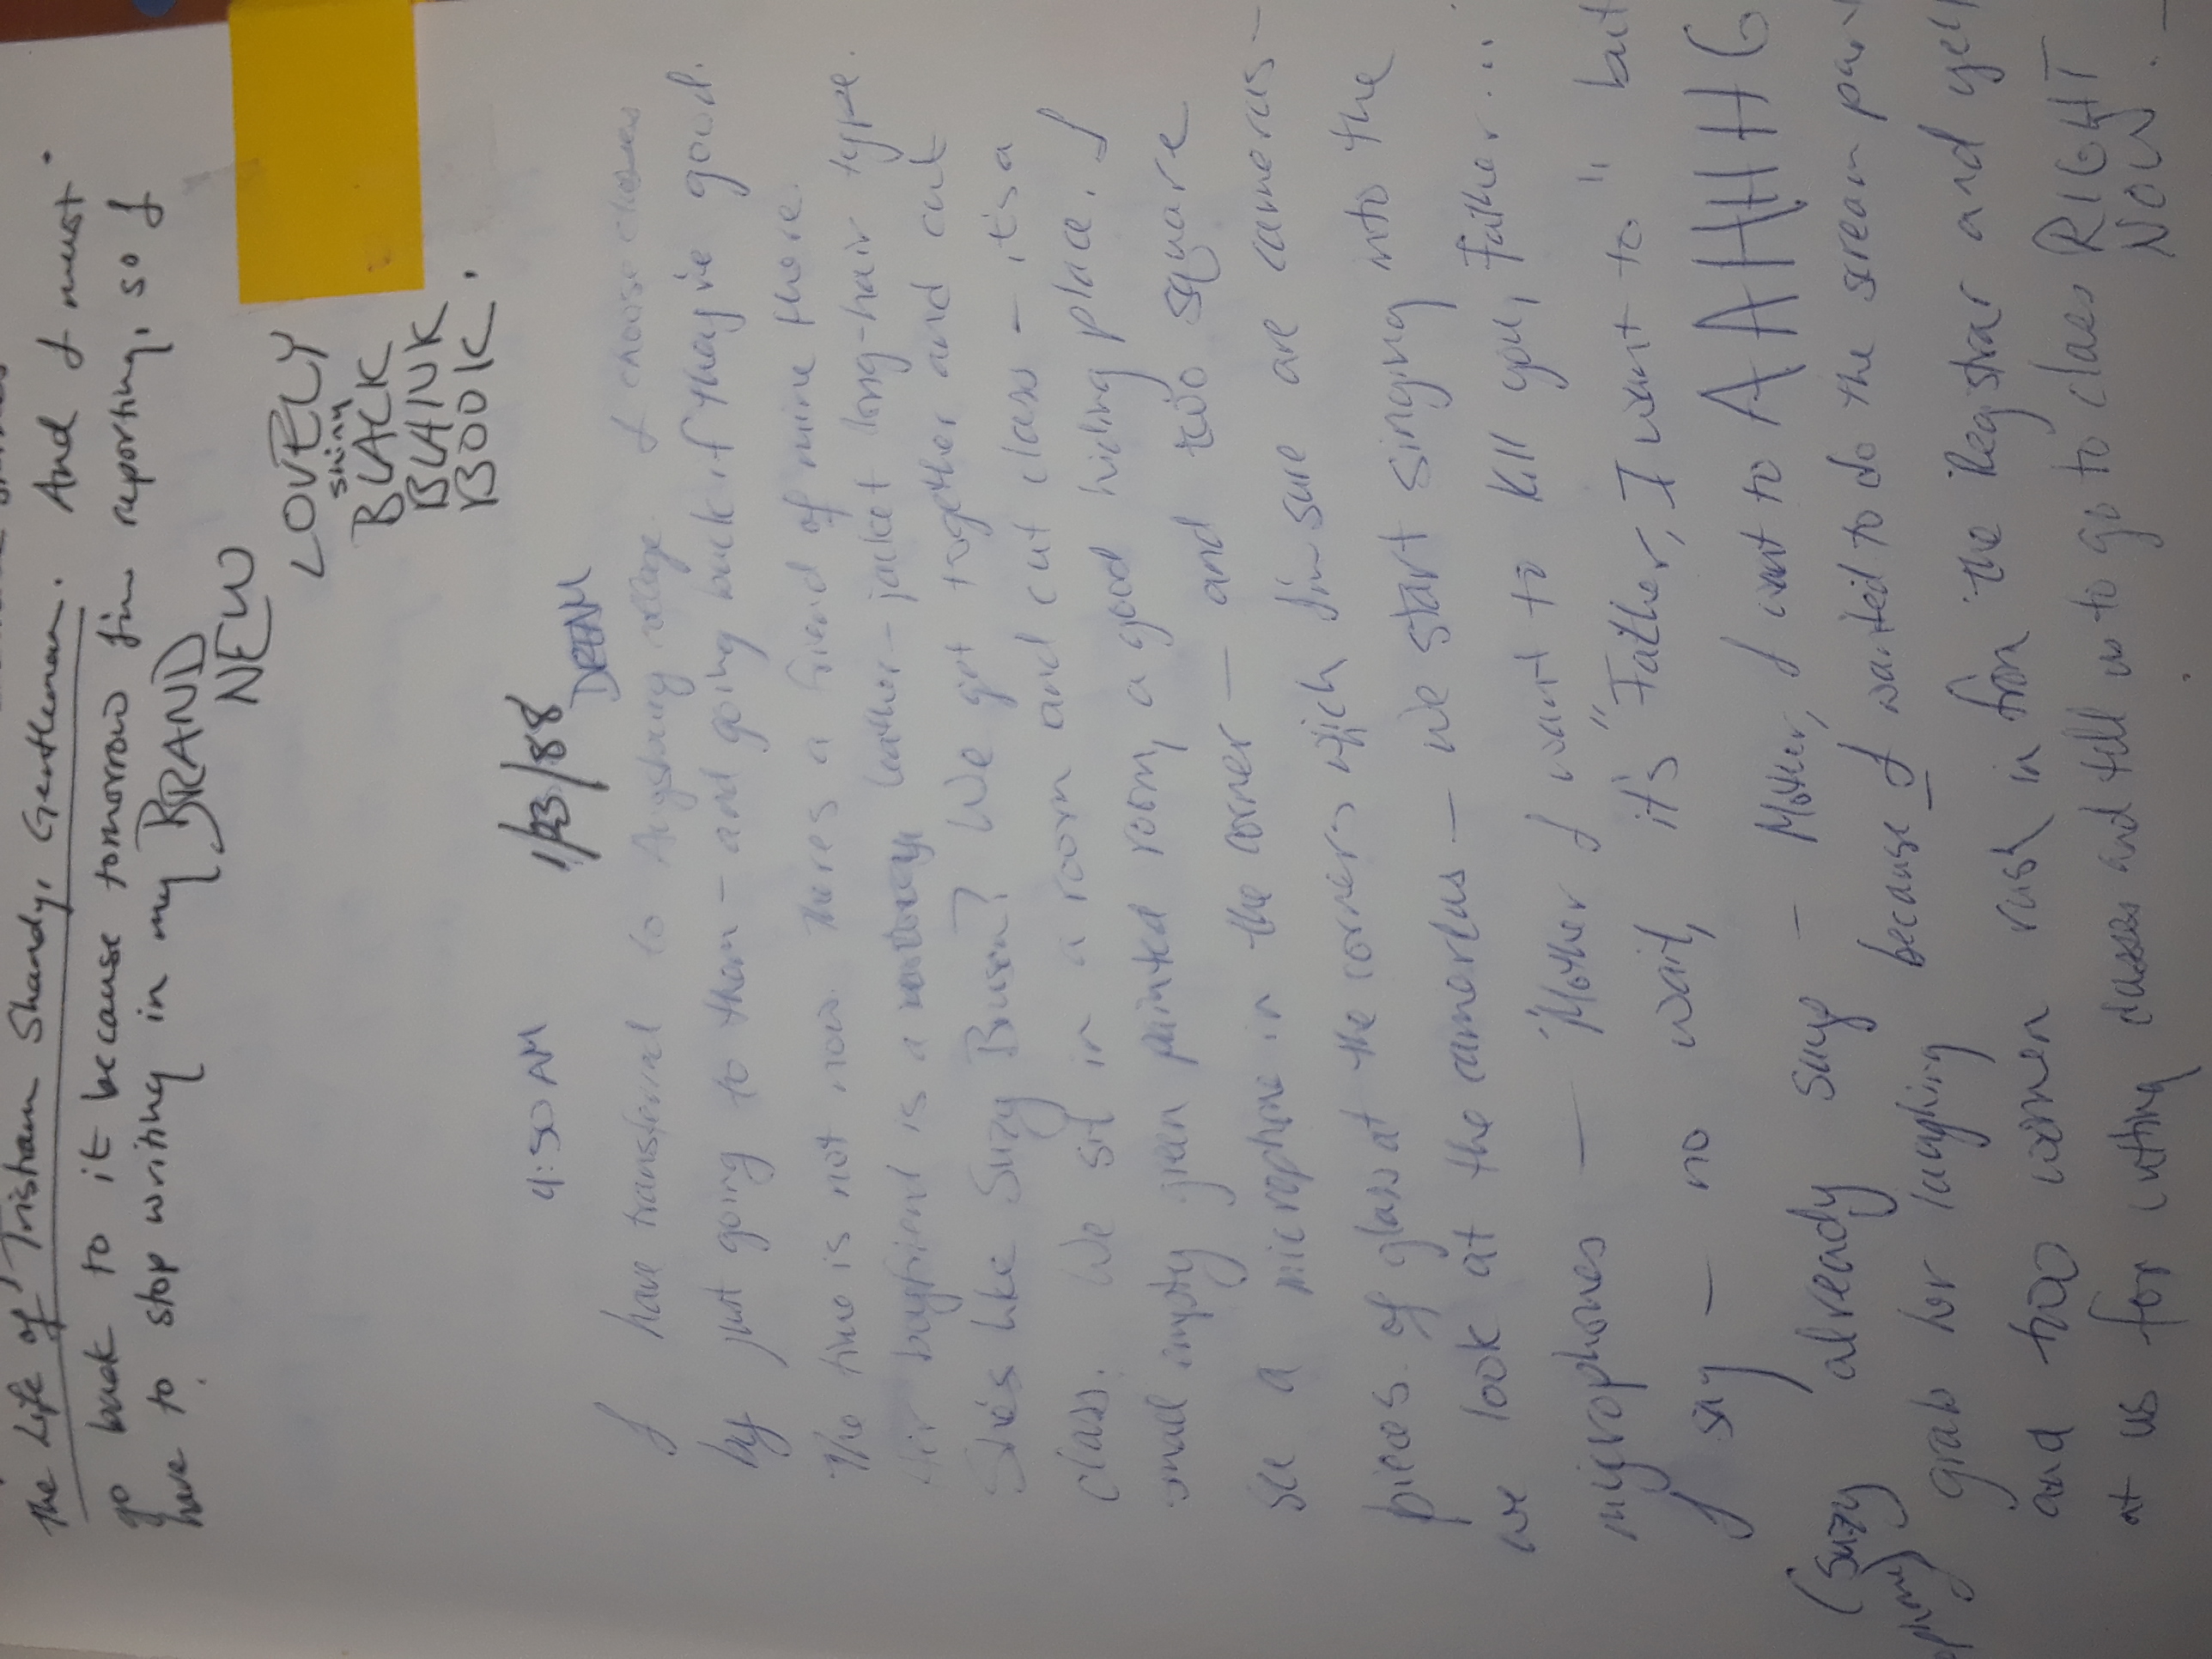 The Life of Tristram Shandy, Gentleman. And I must
go back to it because tomorrow I'm reporting, so I
have to stop writing in my BRAND
NEW
LOVELY
shiny
BLACK
BLANK
BOOK.
4:50 AM 1/23/88 DREAM
I have transferred to college. I choose classes
by just going to them - and going back if they're good.
The time is not now. There's a friend of mine there.
Her boyfriend is a leather-jacket long-hair type.
She's like Suzy ? We get together and cut
class. We sit in a room and cut class - it's a
small empty green painted room, a good hiding place. I
see a microphone in the corner - and two square
pieces of glass at the corners which I'm sure are cameras -
we look at the cameras - we start singing into the
microphones - "Mother I want to kill you, Father...
I say - no wait, it's "Father, I want to" but
(Suzy already sung - Mother, I want to AAHHHG
because I wanted to do the scream part
grab her laughing
and two women rush in from the Registrar and yell
at us for cutting classes and tell us to go to class RIGHT
NOW.